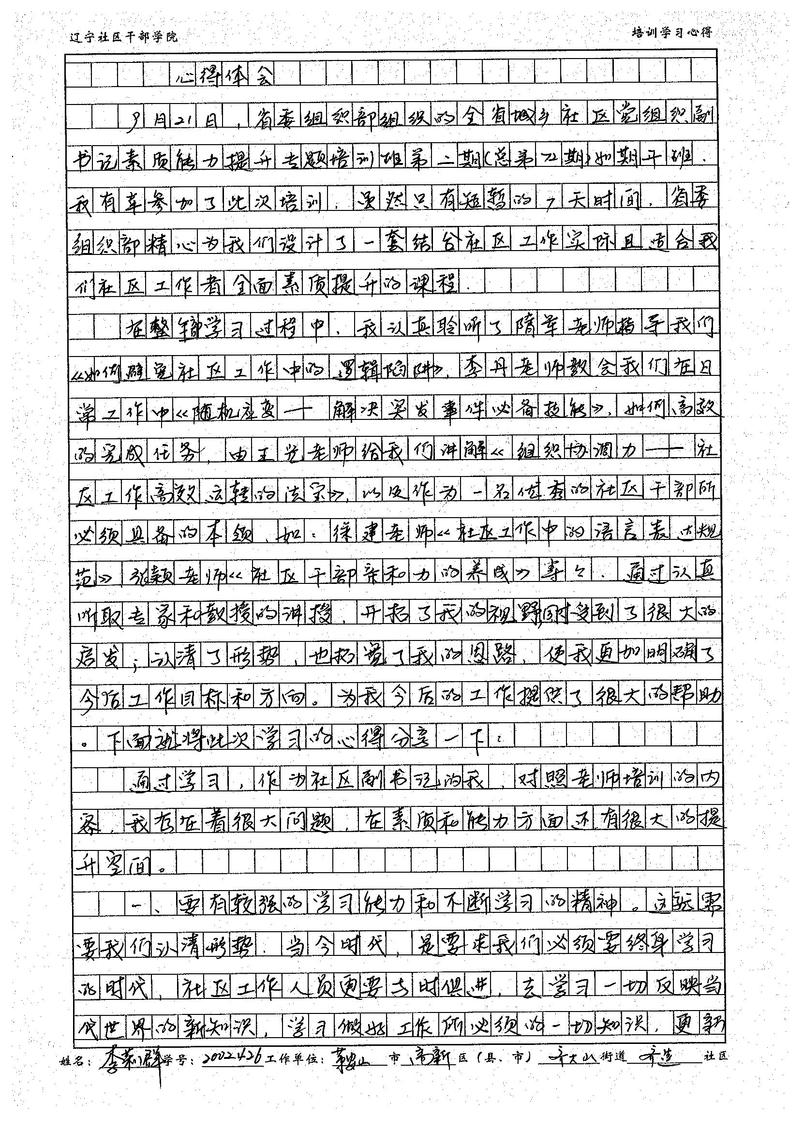 辽宁社区干部学院 培训学习心得
心得体会
9月21日，省委组织部组织的全省城乡社区党组织副
书记素质能力提升专题培训班第二期(总第22期)如期开班．
我有幸参加了此次培训．虽然只有短暂的7天时间．省委
组织部精心为我们设计了一套结合社区工作实际且适合我
们社区工作者全面素质提升的课程．
在整个学习过程中．我认真聆听了隋军老师指导我们
《如何避免社区工作中的逻辑陷阱》．李丹老师教会我们在日
常工作中《随机应变——解决突发事件必备技能》．如何高效
的完成任务，由王老师给我们讲解《组织协调力——社
区工作高效运转的法宝》，以及作为一名优秀的社区干部所
必须具备的本领．如：徐建老师《社区工作中的语言表达规
范》张颖老师《社区干部亲和力的养成》等々．通过认真
听取专家和教授的讲授．开拓了我的视野，同时受到了很大的
启发；认清了形势，也拓宽了我的思路，使我更加明确了
今后工作目标和方向。为我今后的工作提供了很大的帮助
。下面就将此次学习的心得分享一下：
通过学习，作为社区副书记的我，对照老师培训的内
容，我存在着很大问题，在素质和能力方面还有很大的提
升空间。
一、要有较强的学习能力和不断学习的精神。这就需
要我们认清形势．当今时代，是要求我们必须要终身学习
的时代，社区工作人员更要与时俱进，去学习一切反映当
代世界的新知识，学习做好工作所必须的一切知识，更新
姓名：李群 学号：2002426 工作单位：鞍山 市 高新 区（县、市） 齐大山 街道 社区